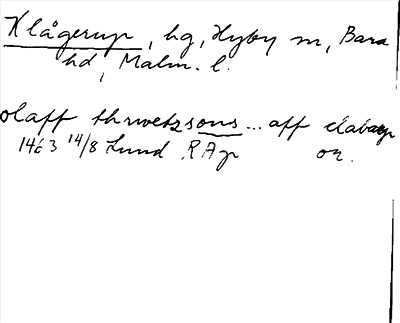 Klågerup, hg, Hyby sn, Bara
hd, Malm. l.
olaff thrwetzsons ... aff
1463 14/8 Lund RAp or.